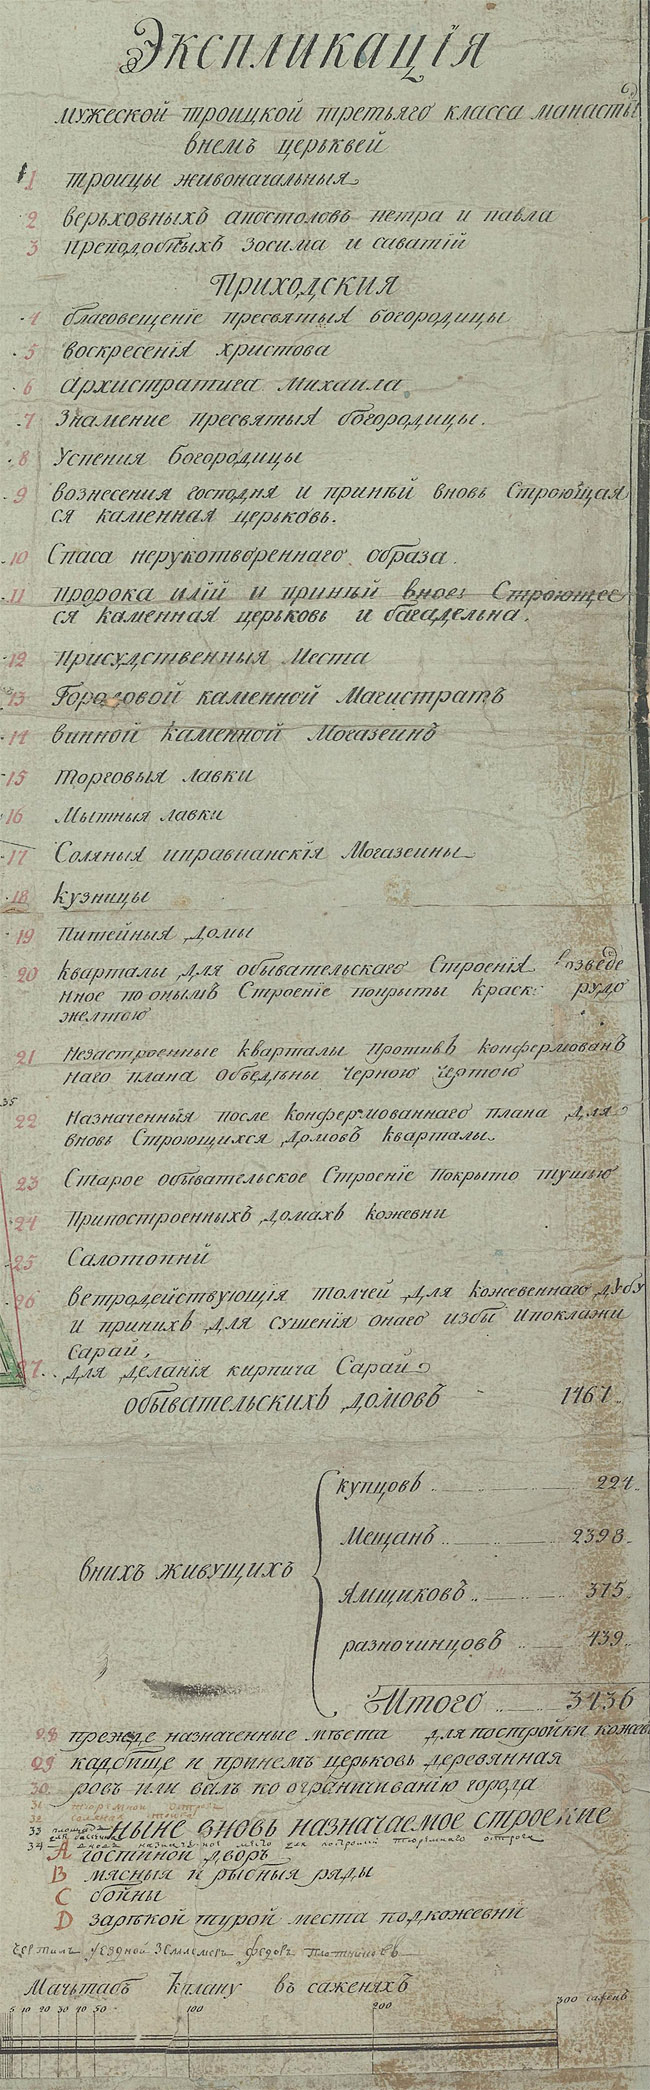 Экспликація
мужеской троицкой третьяго класса манасты
внемъ церьквей
1 троицы живоначальныя
2 верьховныхъ апостоловъ петра и павла
3 преподобныхъ зосима и саватій
Приходския
4 благовещеніе пресвятыя богородицы
5 воскресенія христова
6 архистратига михаила
7 Знамение пресвятыя богородицы.
8 Успения богородицы
9 вознесения господня и принѣй вновь Строющая
ся каменная церьковь.
10 Спаса нерукотвореннаго образа.
11 пророка илій и принѣй вновь Строющее
ся каменная церьковь и багадельна.
12 Присудственныя Места
13 Городовой каменной Магистратъ
14 винной каменной Могазеинъ
15 Торговыя лавки
16 Мытныя лавки
17 Соляныя иправианскія Могазеины
18 кузницы
19 Питейныя домы
20 кварталы для обывательскаго Строенія возведе
нное по онымъ Строеніе покрыты краск: рудо
желтою
21 Незастроенные кварталы противъ конфермован
наго плана обведѣны черною чертою
35
22 Назначенныя после конфермованнаго плана для
вновь Строющихся домовъ кварталы
23 Старое обывательское Строеніе покрыто тушью
24 Припостроенныхъ домахъ кожевни
25 Салотопній
26 ветродействующія толчей для кожевеннаго дубу
и принихъ для сушенія онаго избы ипоклажи
Сарай.
27. для деланія кирпича Сарай
обывательскихъ домовъ 1467
купцовъ 224
Мещанъ 2398
внихъ живущихъ
Ямщиковъ 375
разночинцовъ 439
Итого 3436
28 прежде назначенные мѣста для постройки кожев
29 кладбище и принемъ церьковь деревянная
30 ровъ или валъ ко ограничиванію города
31 тюремной острог
32 соляная
33 площадь
ныне вновь назначаемое строение
34 вновь назначенное место для тюремнаго острога
A гостинной дворъ
B мясныя и рыбныя ряды
C бойны
D зарѣкой турой места подкожевни
Чертилъ уездной Землемеръ федоръ
Мачьтабъ кплану въ саженяхъ
5 10 20 30 40 50 100 200 300 саженъ